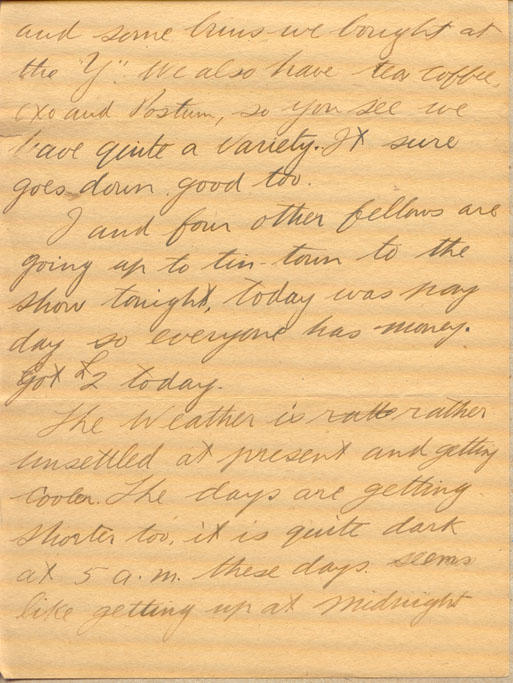 and some buns we bought at
the "Y". We also have tea coffee,
oxo and Postum, so you see we
have quite a variety. It sure
goes down good too.
I and four other fellows are
going up to tin-town to the
show tonight, today was pay
day so everyone has money.
Got £2 today.
The Weather is ratte rather
unsettled at present and getting
cooler. The days are getting
shorter too, it is quite dark
at 5 a.m. these days. seems
like getting up at midnight